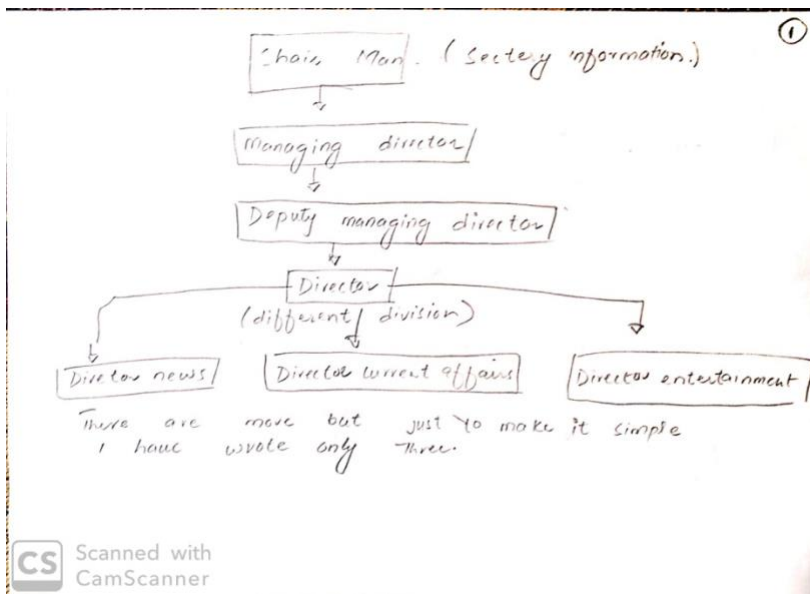 ①
Chair Man. (Sectery information.)
managing director
Deputy managing director
Director
(different division)
Diretor news
Director current affairs
Director entertainment
There are more but just to make it simple
I have wrote only Three.
CS Scanned with
CamScanner